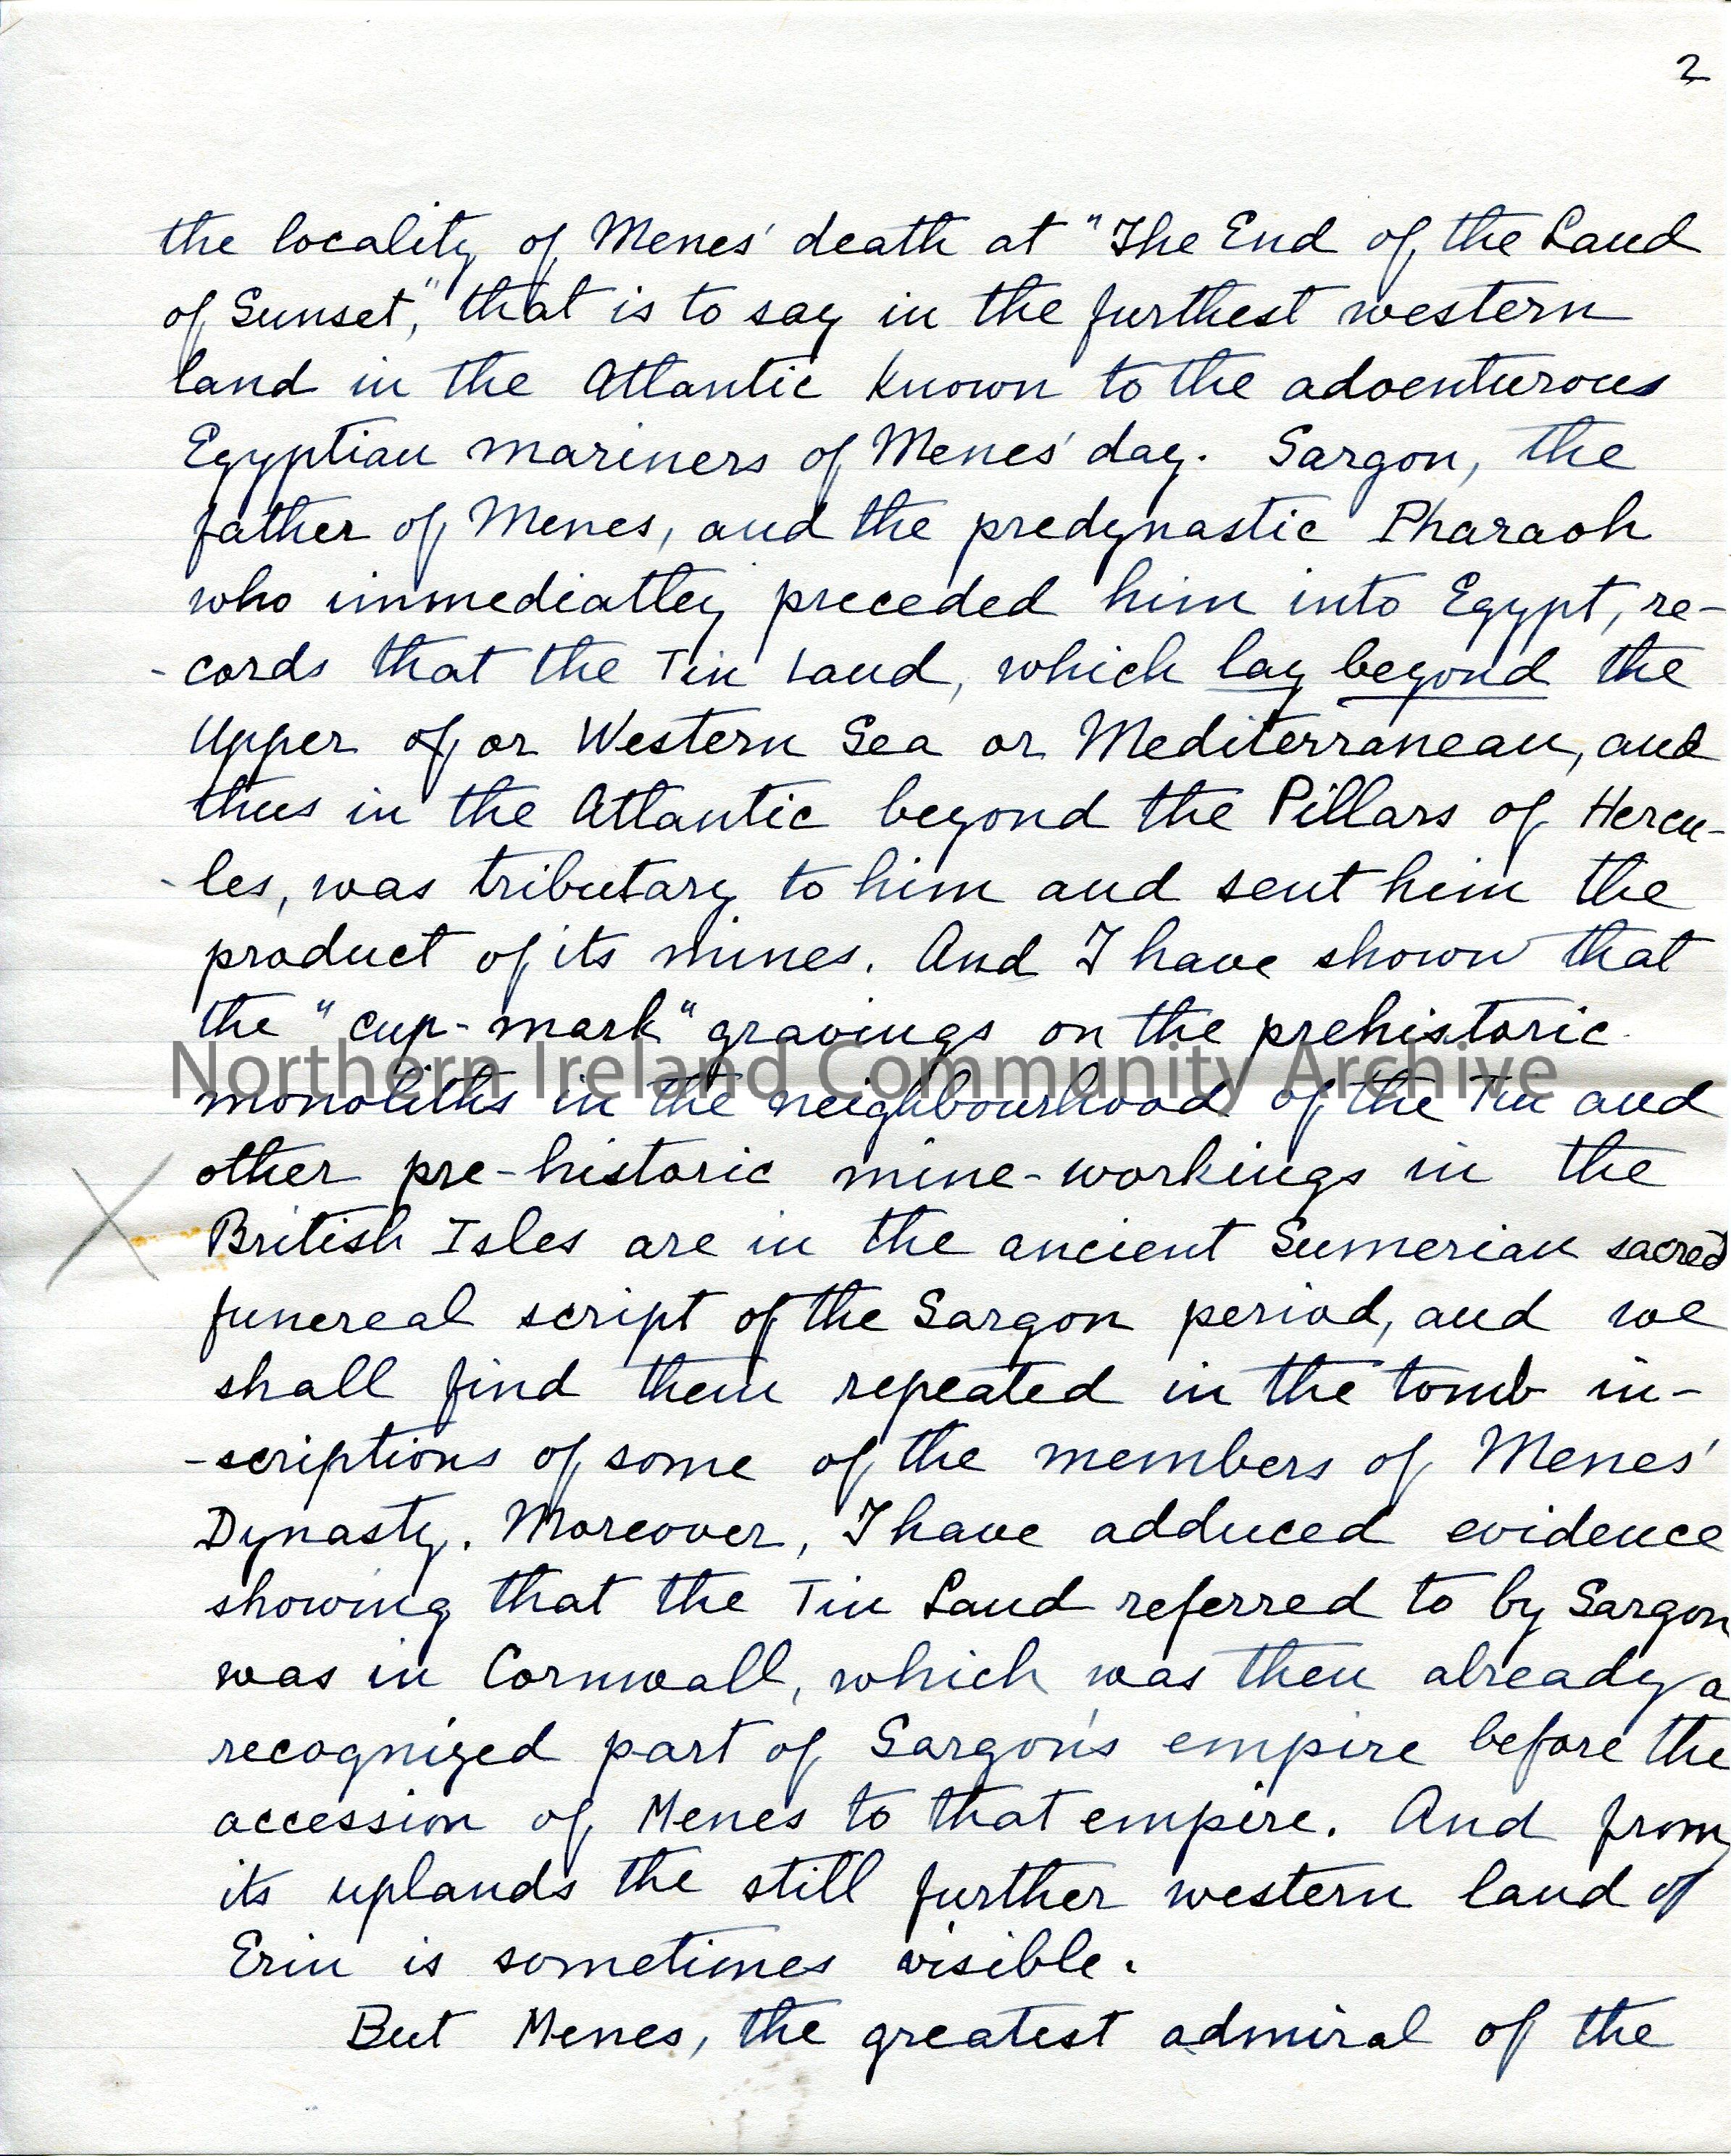 2
the locality of Menes' death at "The End of the Land
of Sunset," that is to say in the furthest western
land in the Atlantic known to the adventurous
Egyptian mariners of Menes' day. Sargon, the
father of Menes, and the predynastic Pharaoh
who immediatley preceded him into Egypt, re-
-cords that the Tin Land, which lay beyond the
Upper of or Western Sea or Mediterranean, and
thus in the Atlantic beyond the Pillars of Hercu-
-les, was tributary to him and sent him the
product of its mines. And I have shown that
the "cup-mark" gravings on the prehistoric
Northern Ireland Community Archive
monoliths in the neighbourhood of the Tin and
other pre-historic mine-workings in the
British Isles are in the ancient Sumerian sacred
funereal script of the Sargon period, and we
shall find them repeated in the tomb in-
-scriptions of some of the members of Menes'
Dynasty. Moreover, I have adduced evidence
showing that the Tin Land referred to by Sargon
was in Cornwall, which was then already a
recognized part of Sargon's empire before the
accession of Menes to that empire. And from
its uplands the still further western land of
Erin is sometimes visible.
But Menes, the greatest admiral of the